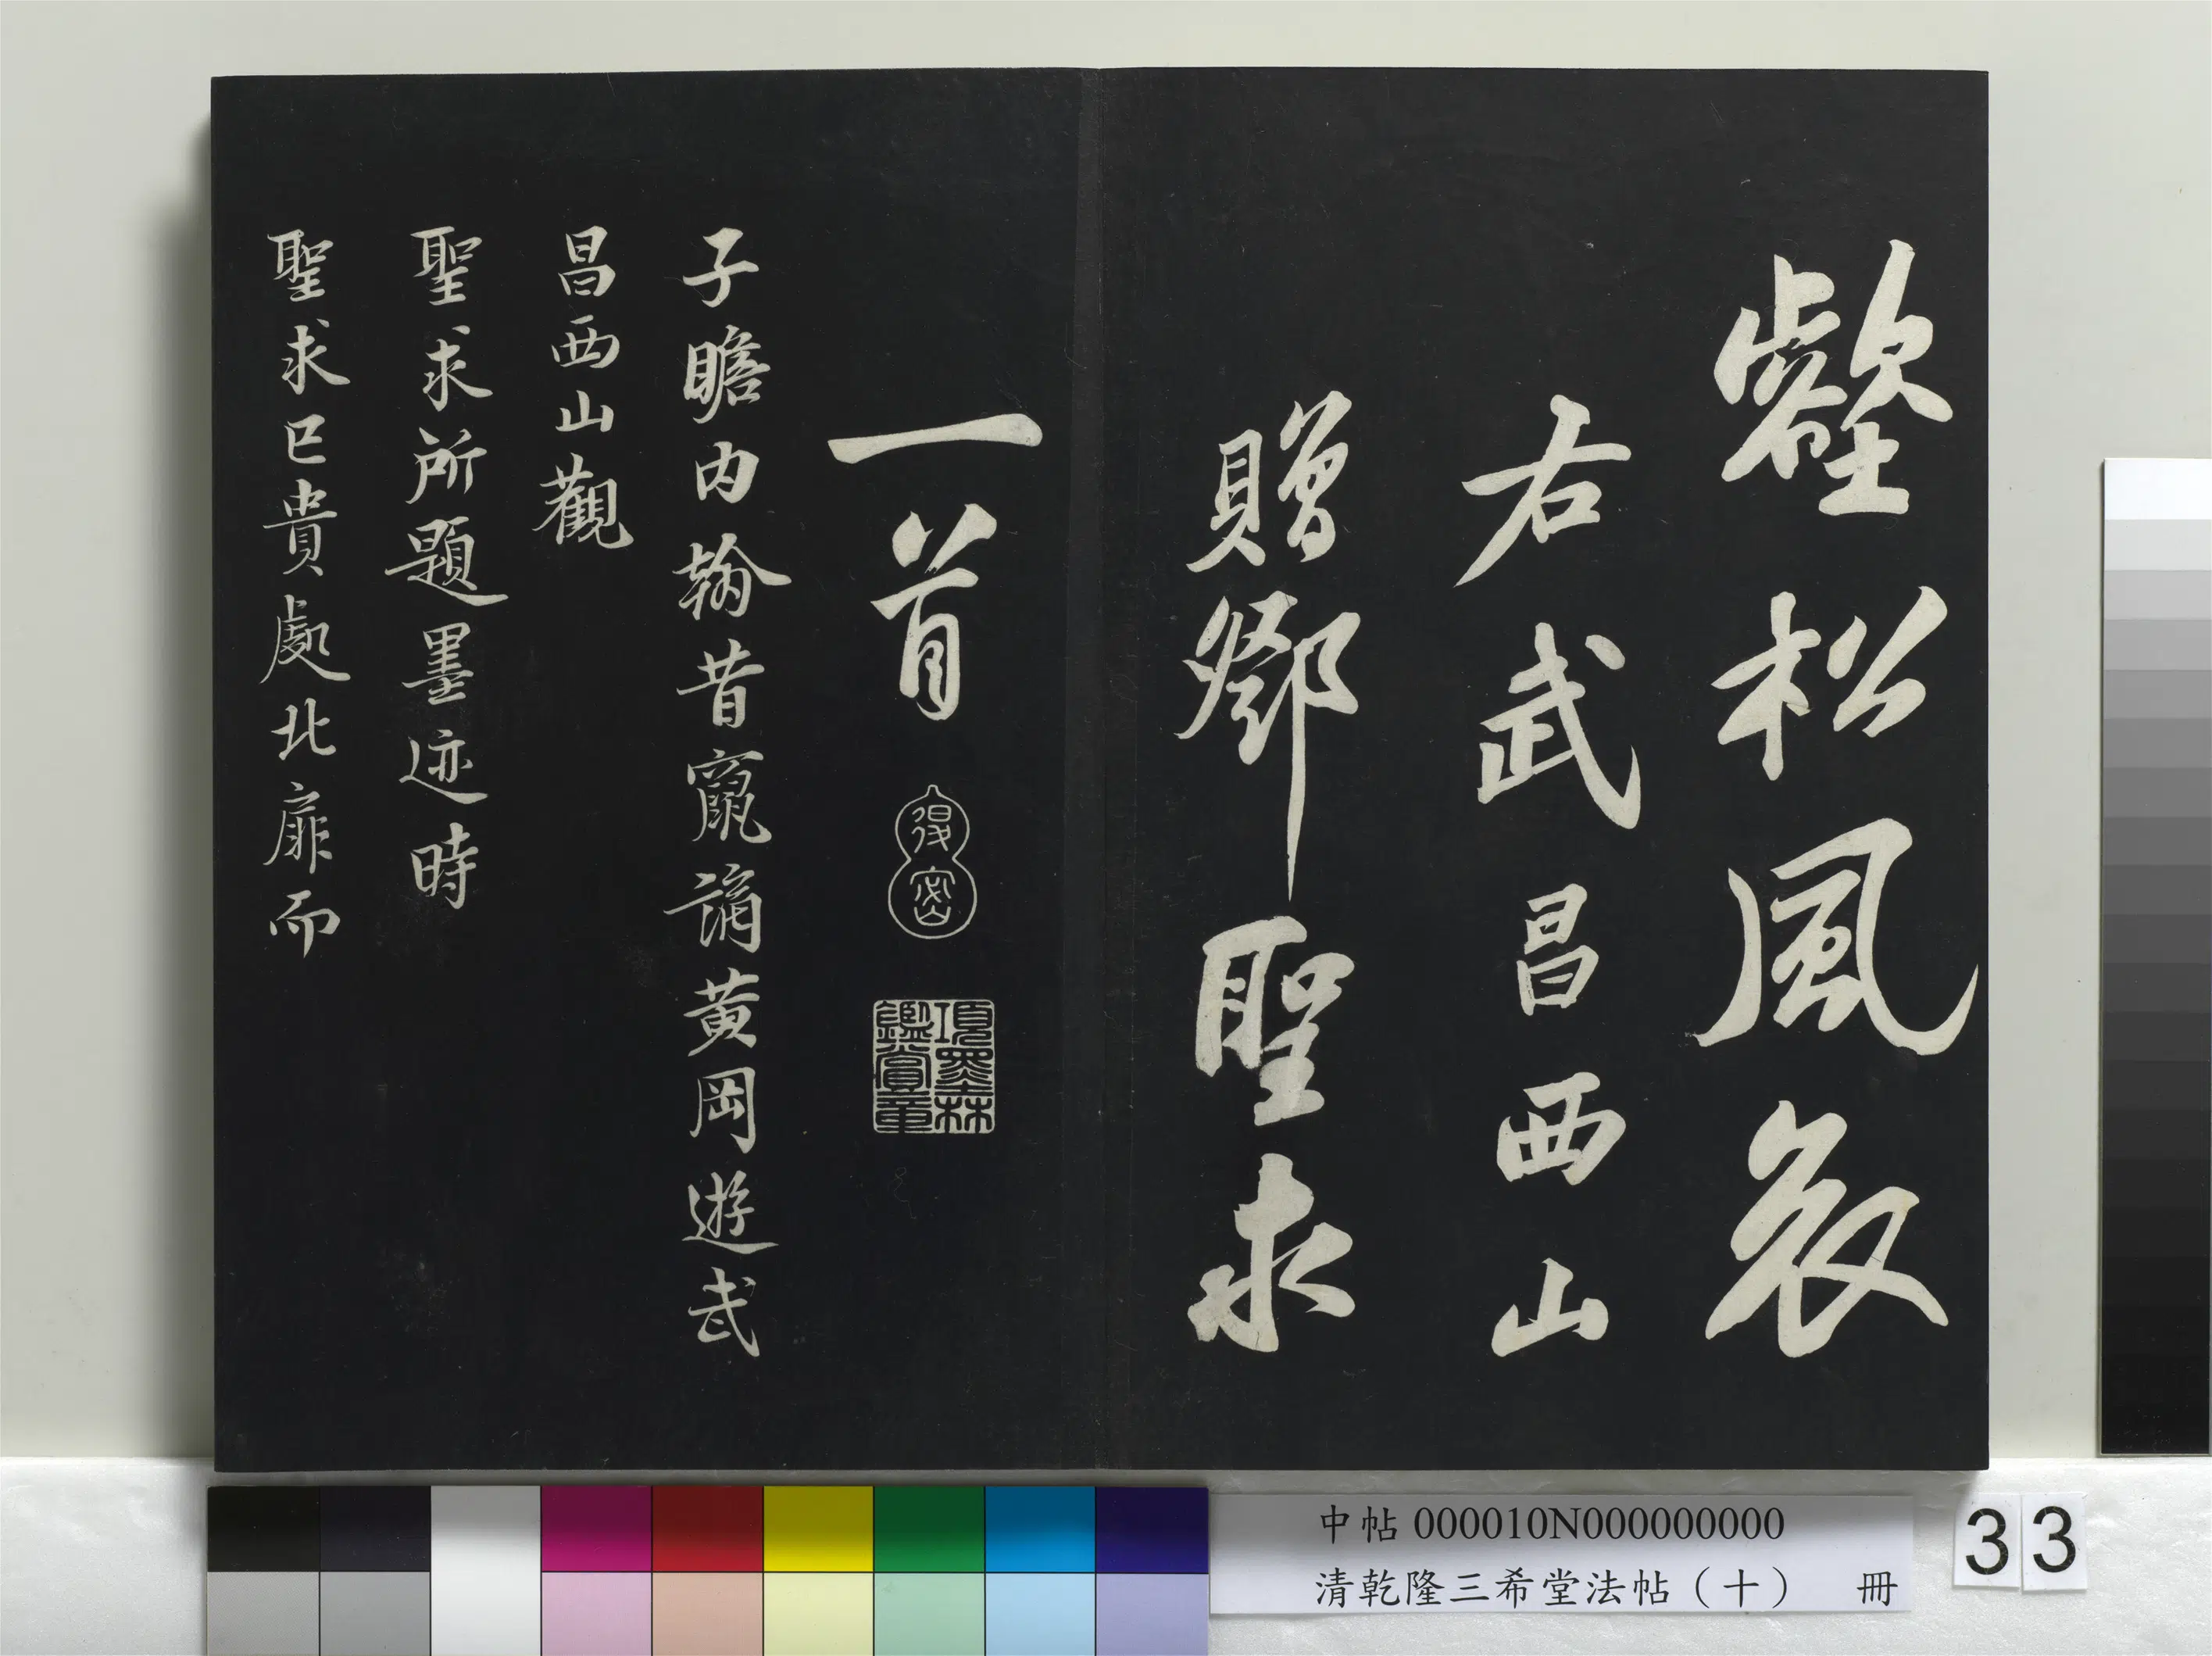 壑松風哀
右武昌西山
贈鄧聖求
一首
得密
項墨林鑑賞章
子瞻内翰昔竄謫黄岡遊武
昌西山觀
聖求所題墨迹時
聖求已貴處北扉而
中帖 000010N000000000
清乾隆三希堂法帖（十） 冊
33